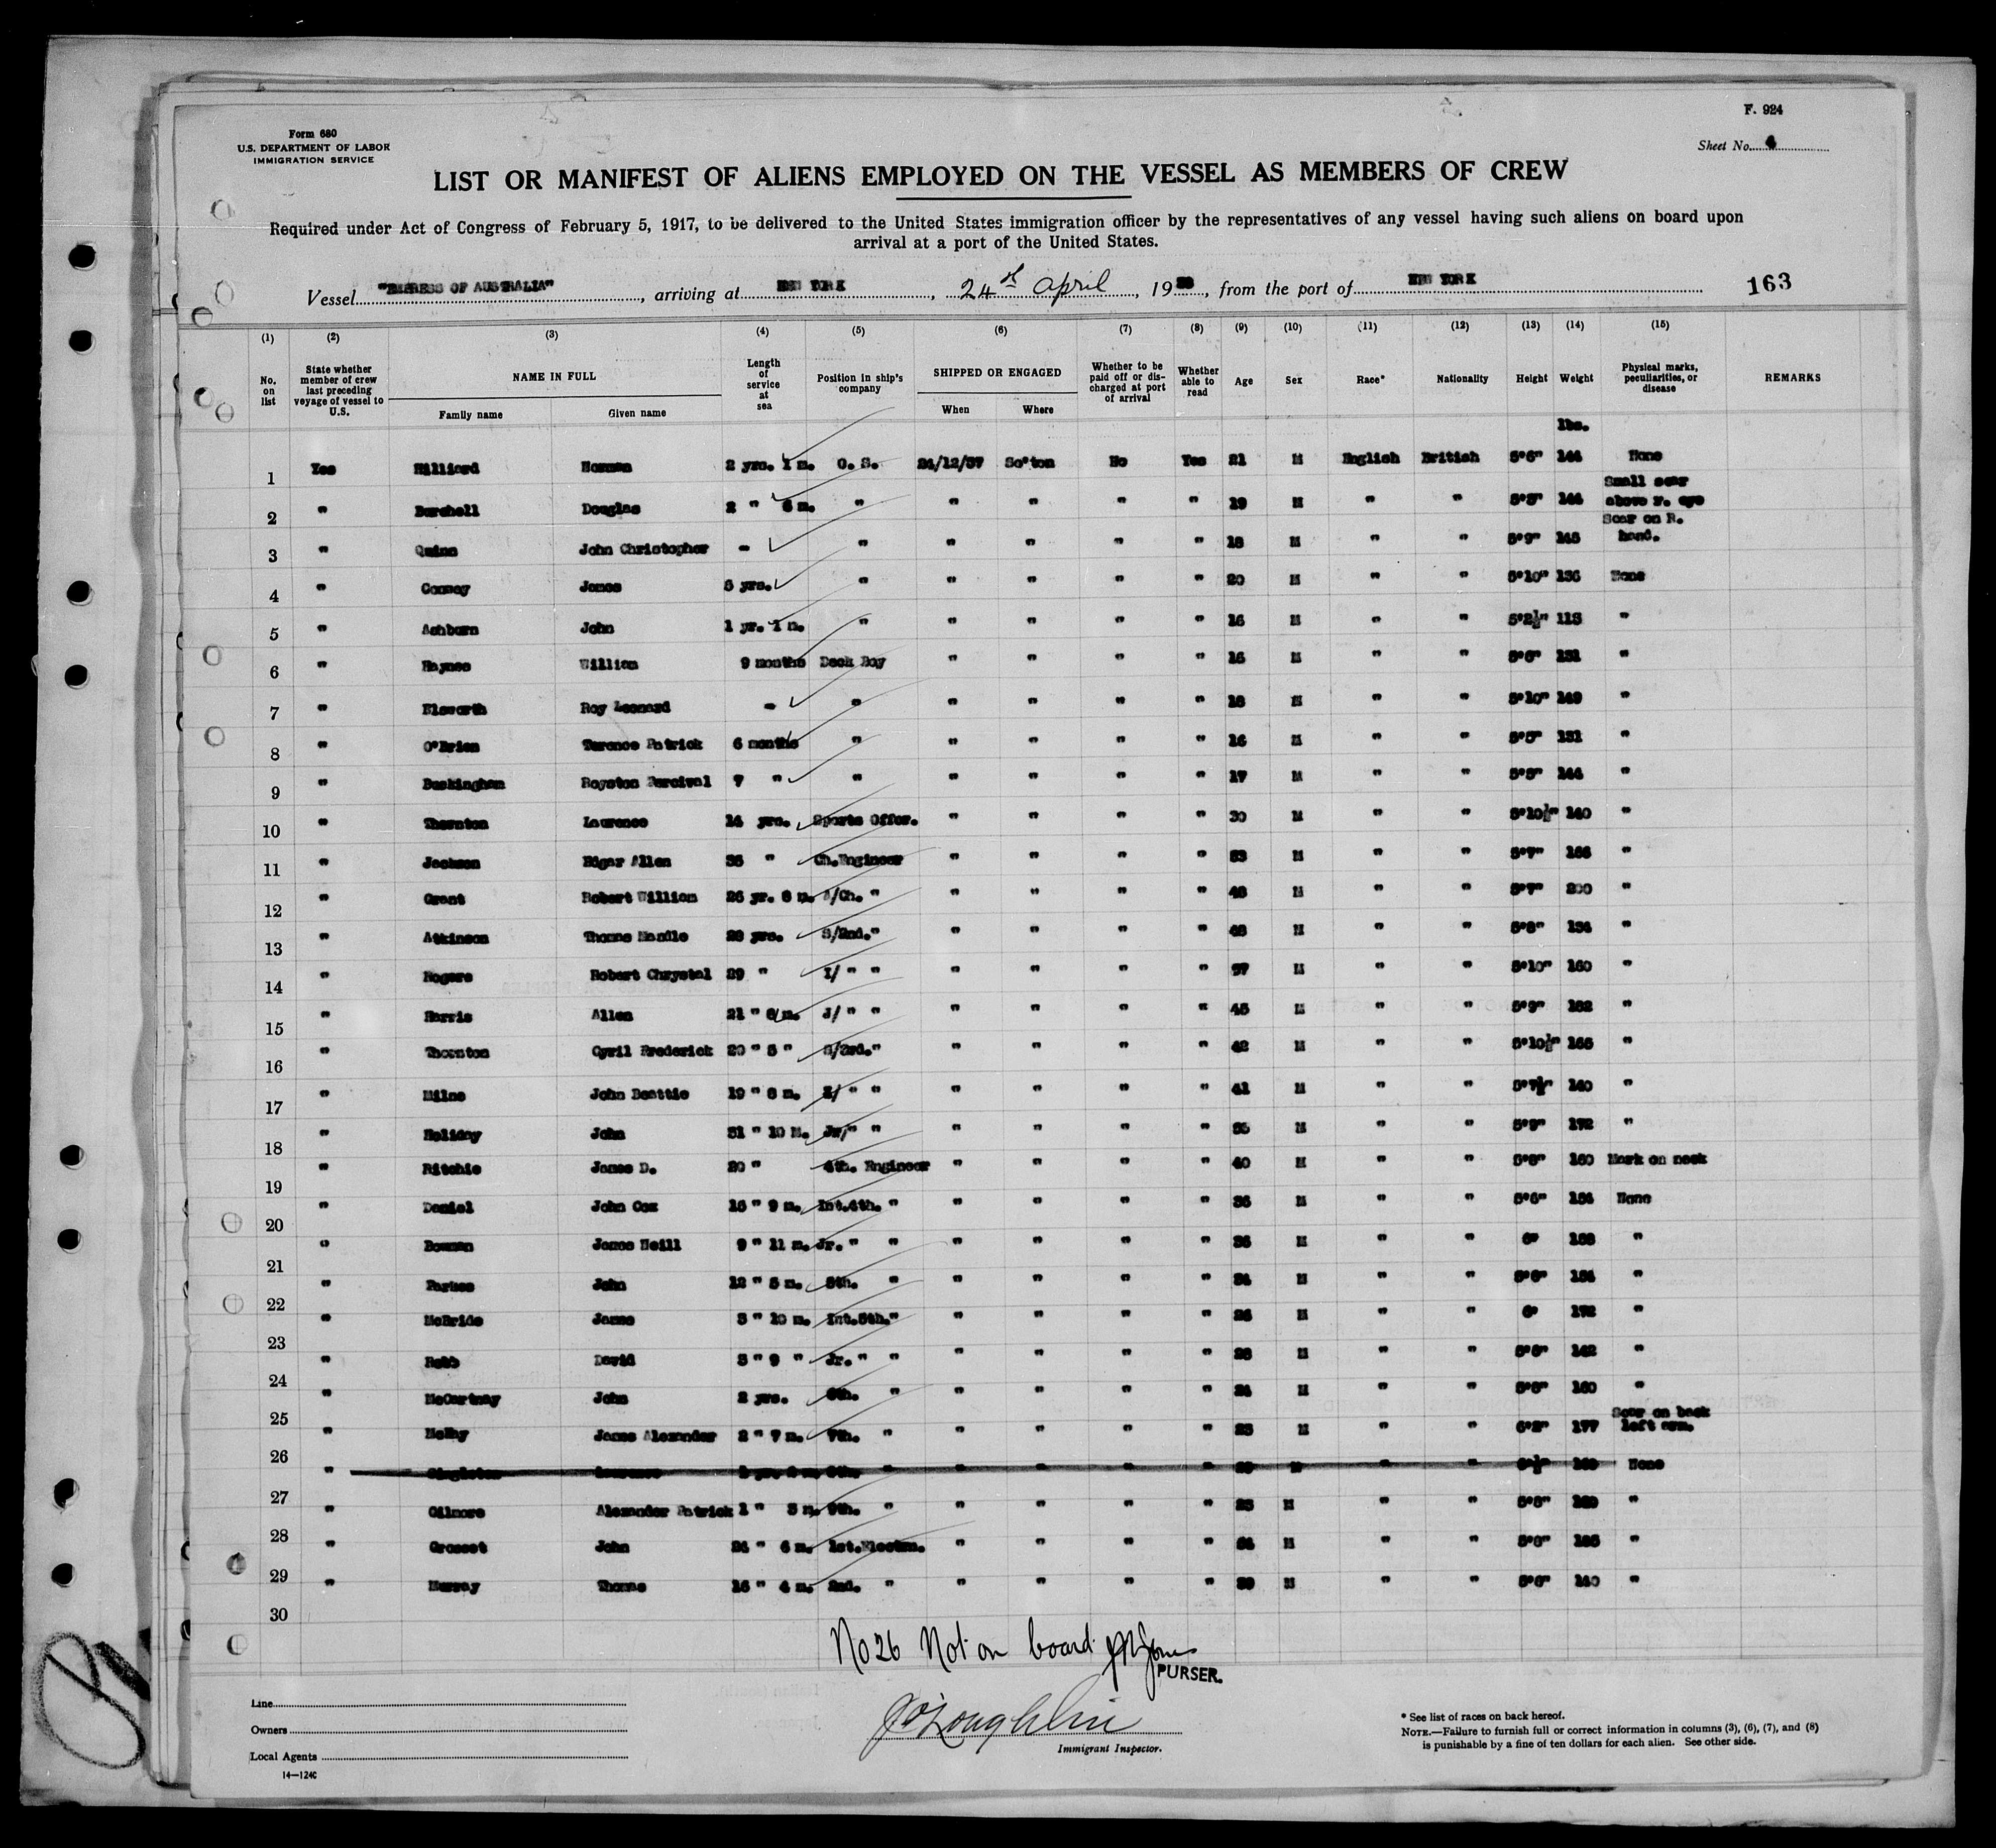 F. 924
Form 680
U.S. DEPARTMENT OF LABOR
IMMIGRATION SERVICE
Sheet No. 4
LIST OR MANIFEST OF ALIENS EMPLOYED ON THE VESSEL AS MEMBERS OF CREW
Required under Act of Congress of February 5, 1917, to be delivered to the United States immigration officer by the representatives of any vessel having such aliens on board upon
arrival at a port of the United States.
Vessel "EMPRESS OF AUSTRALIA", arriving at NEW YORK, 24th April, 1938, from the port of NEW YORK 163
(1) (2) (3) (4) (5) (6) (7) (8) (9) (10) (11) (12) (13) (14) (15)
No. on list State whether member of crew last preceding voyage of vessel to U.S. NAME IN FULL Length of service at sea Position in ship's company SHIPPED OR ENGAGED Whether to be paid off or discharged at port of arrival Whether able to read Age Sex Race* Nationality Height Weight Physical marks, peculiarities, or disease REMARKS
Family name Given name When Where
lbs.
1 Yes Hilliard Norman 2 yrs. 1 m. O. S. 24/12/37 So'ton No Yes 21 M English British 5'6" 144 None
2 " Burchell Douglas 2 " 6 m. " " " " " 19 M " " 5'8" 144 Small scar above r. eye
3 " Quinn John Christopher - " " " " " 18 M " " 5'9" 145 Scar on R. hand.
4 " James 3 yrs. " " " " " 20 M " " 5'10" 136 None
5 " Ashburn John 1 yr. 1 m. " " " " " 16 M " " 5'2½" 113 "
6 " Haynes William 9 months Deck Boy " " " " 16 M " " 5'6" 131 "
7 " Elsworth Roy Leonard - " " " " " 18 M " " 5'10" 149 "
8 " O'Brien Terence Patrick 6 months " " " " " 16 M " " 5'5" 131 "
9 " Buckingham Royston Percival 7 " " " " " " 17 M " " 5'5" 144 "
10 " Thornton Laurence 14 yrs. Sports Offcr. " " " " 30 M " " 5'10½" 140 "
11 " Jackson Edgar Allen 36 " Ch.Engineer " " " " 53 M " " 5'7" 166 "
12 " Grant Robert William 26 yr. 8 m. A/Ch. " " " " " 48 M " " 5'7" 200 "
13 " Atkinson Thomas Mandle 28 yrs. S/2nd." " " " " 48 M " " 5'8" 134 "
14 " Rogers Robert Chrystal 29 " I/ " " " " " " 57 M " " 5'10" 160 "
15 " Harris Allen 21 " 6 m. J/ " " " " " " 45 M " " 5'9" 182 "
16 " Thornton Cyril Frederick 20 " 5 " S/3rd." " " " " 42 M " " 5'10½" 165 "
17 " Milne John Beattie 19 " 8 m. I/ " " " " " " 41 M " " 5'7½" 140 "
18 " Holiday John 31 " 10 M. Jr/" " " " " " M " " 5'9" 172 "
19 " Ritchie James D. 20 " 4th. Engineer " " " " 40 M " " 5'8" 160 Mark on neck
20 " Daniel John Cox 16 " 9 m. Int.4th. " " " " " 36 M " " 5'6" 154 None
21 " Bowman James Neill 9 " 11 m. Jr. " " " " " " 36 M " " 6' 168 "
22 " Parnes John 12 " 5 m. 5th. " " " " " 34 M " " 5'6" 154 "
23 " McBride James 3 " 10 m. Int.5th." " " " " 26 M " " 6' 172 "
24 " Robb David 3 " 9 " Jr. " " " " " " 28 M " " 5'8" 142 "
25 " McCartney John 2 yrs. 6th. " " " " " 24 M " " 5'8" 160 "
26 " James Alexander 2 " 7 m. 7th. " " " " " 23 M " " 6'2" 177 Scar on back left arm.
27 " Singleton Laurence 8th. " " " " " M " " None
28 " Gilmore Alexander Patrick 1 " 3 m. 9th. " " " " " 23 M " " 5'8" "
29 " Grosset John 24 " 6 m. 1st.Electrn. " " " " M " " "
30 " Murray Thomas 16 " 4 m. 2nd. " " " " " 39 M " " 5'6" 140 "
No 26 Not on board
PURSER.
J O'Loughlin
Immigrant Inspector.
Line
Owners
Local Agents
14—124C
* See list of races on back hereof.
NOTE.—Failure to furnish full or correct information in columns (3), (6), (7), and (8)
is punishable by a fine of ten dollars for each alien. See other side.